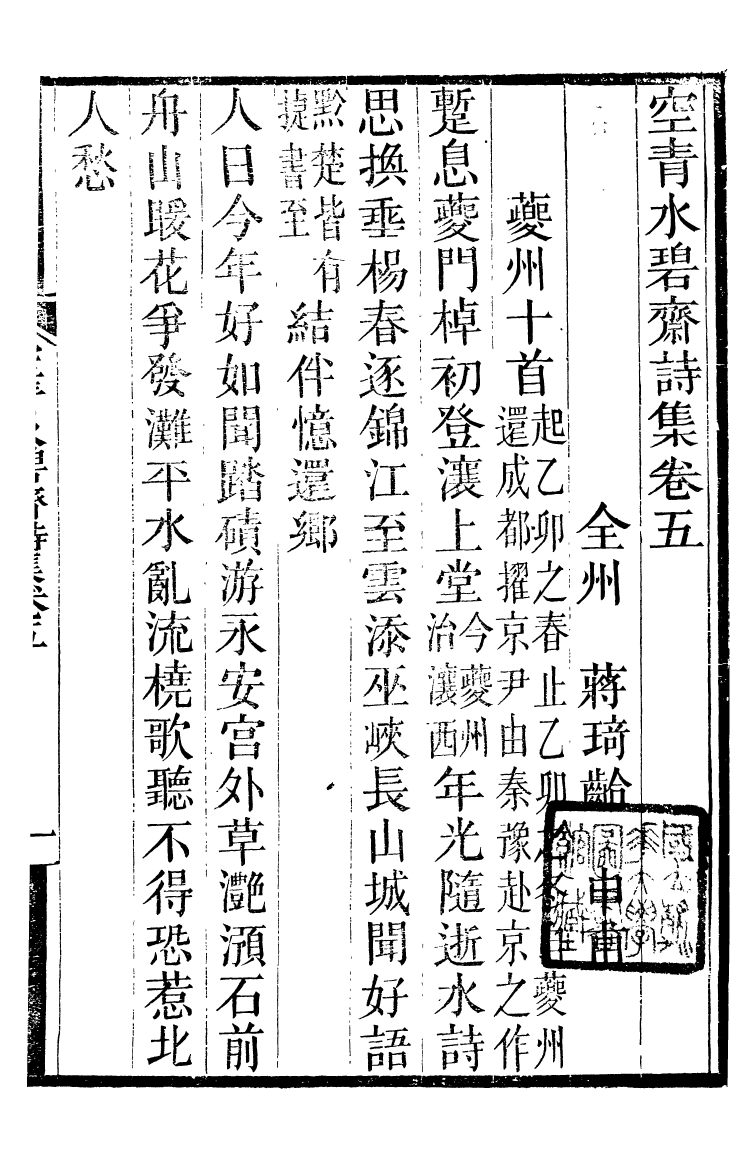 空青水碧齋詩集卷五
全州　蔣琦齡　申甫
夔州十首 起乙卯之春止乙卯 夔州
還成都擢京尹由秦豫赴京之作
蹔息夔門棹初登瀼上堂 今夔州
治瀼西 年光隨逝水詩
思換垂楊春逐錦江至雲添巫峽長山城聞好語
黔楚皆有
捷書至 結伴憶還鄉
人日今年好如聞踏磧游永安宮外草灧澦石前
舟山暖花爭發灘平水亂流橈歌聽不得恐惹北
人愁
空青水碧齋詩集卷五
一